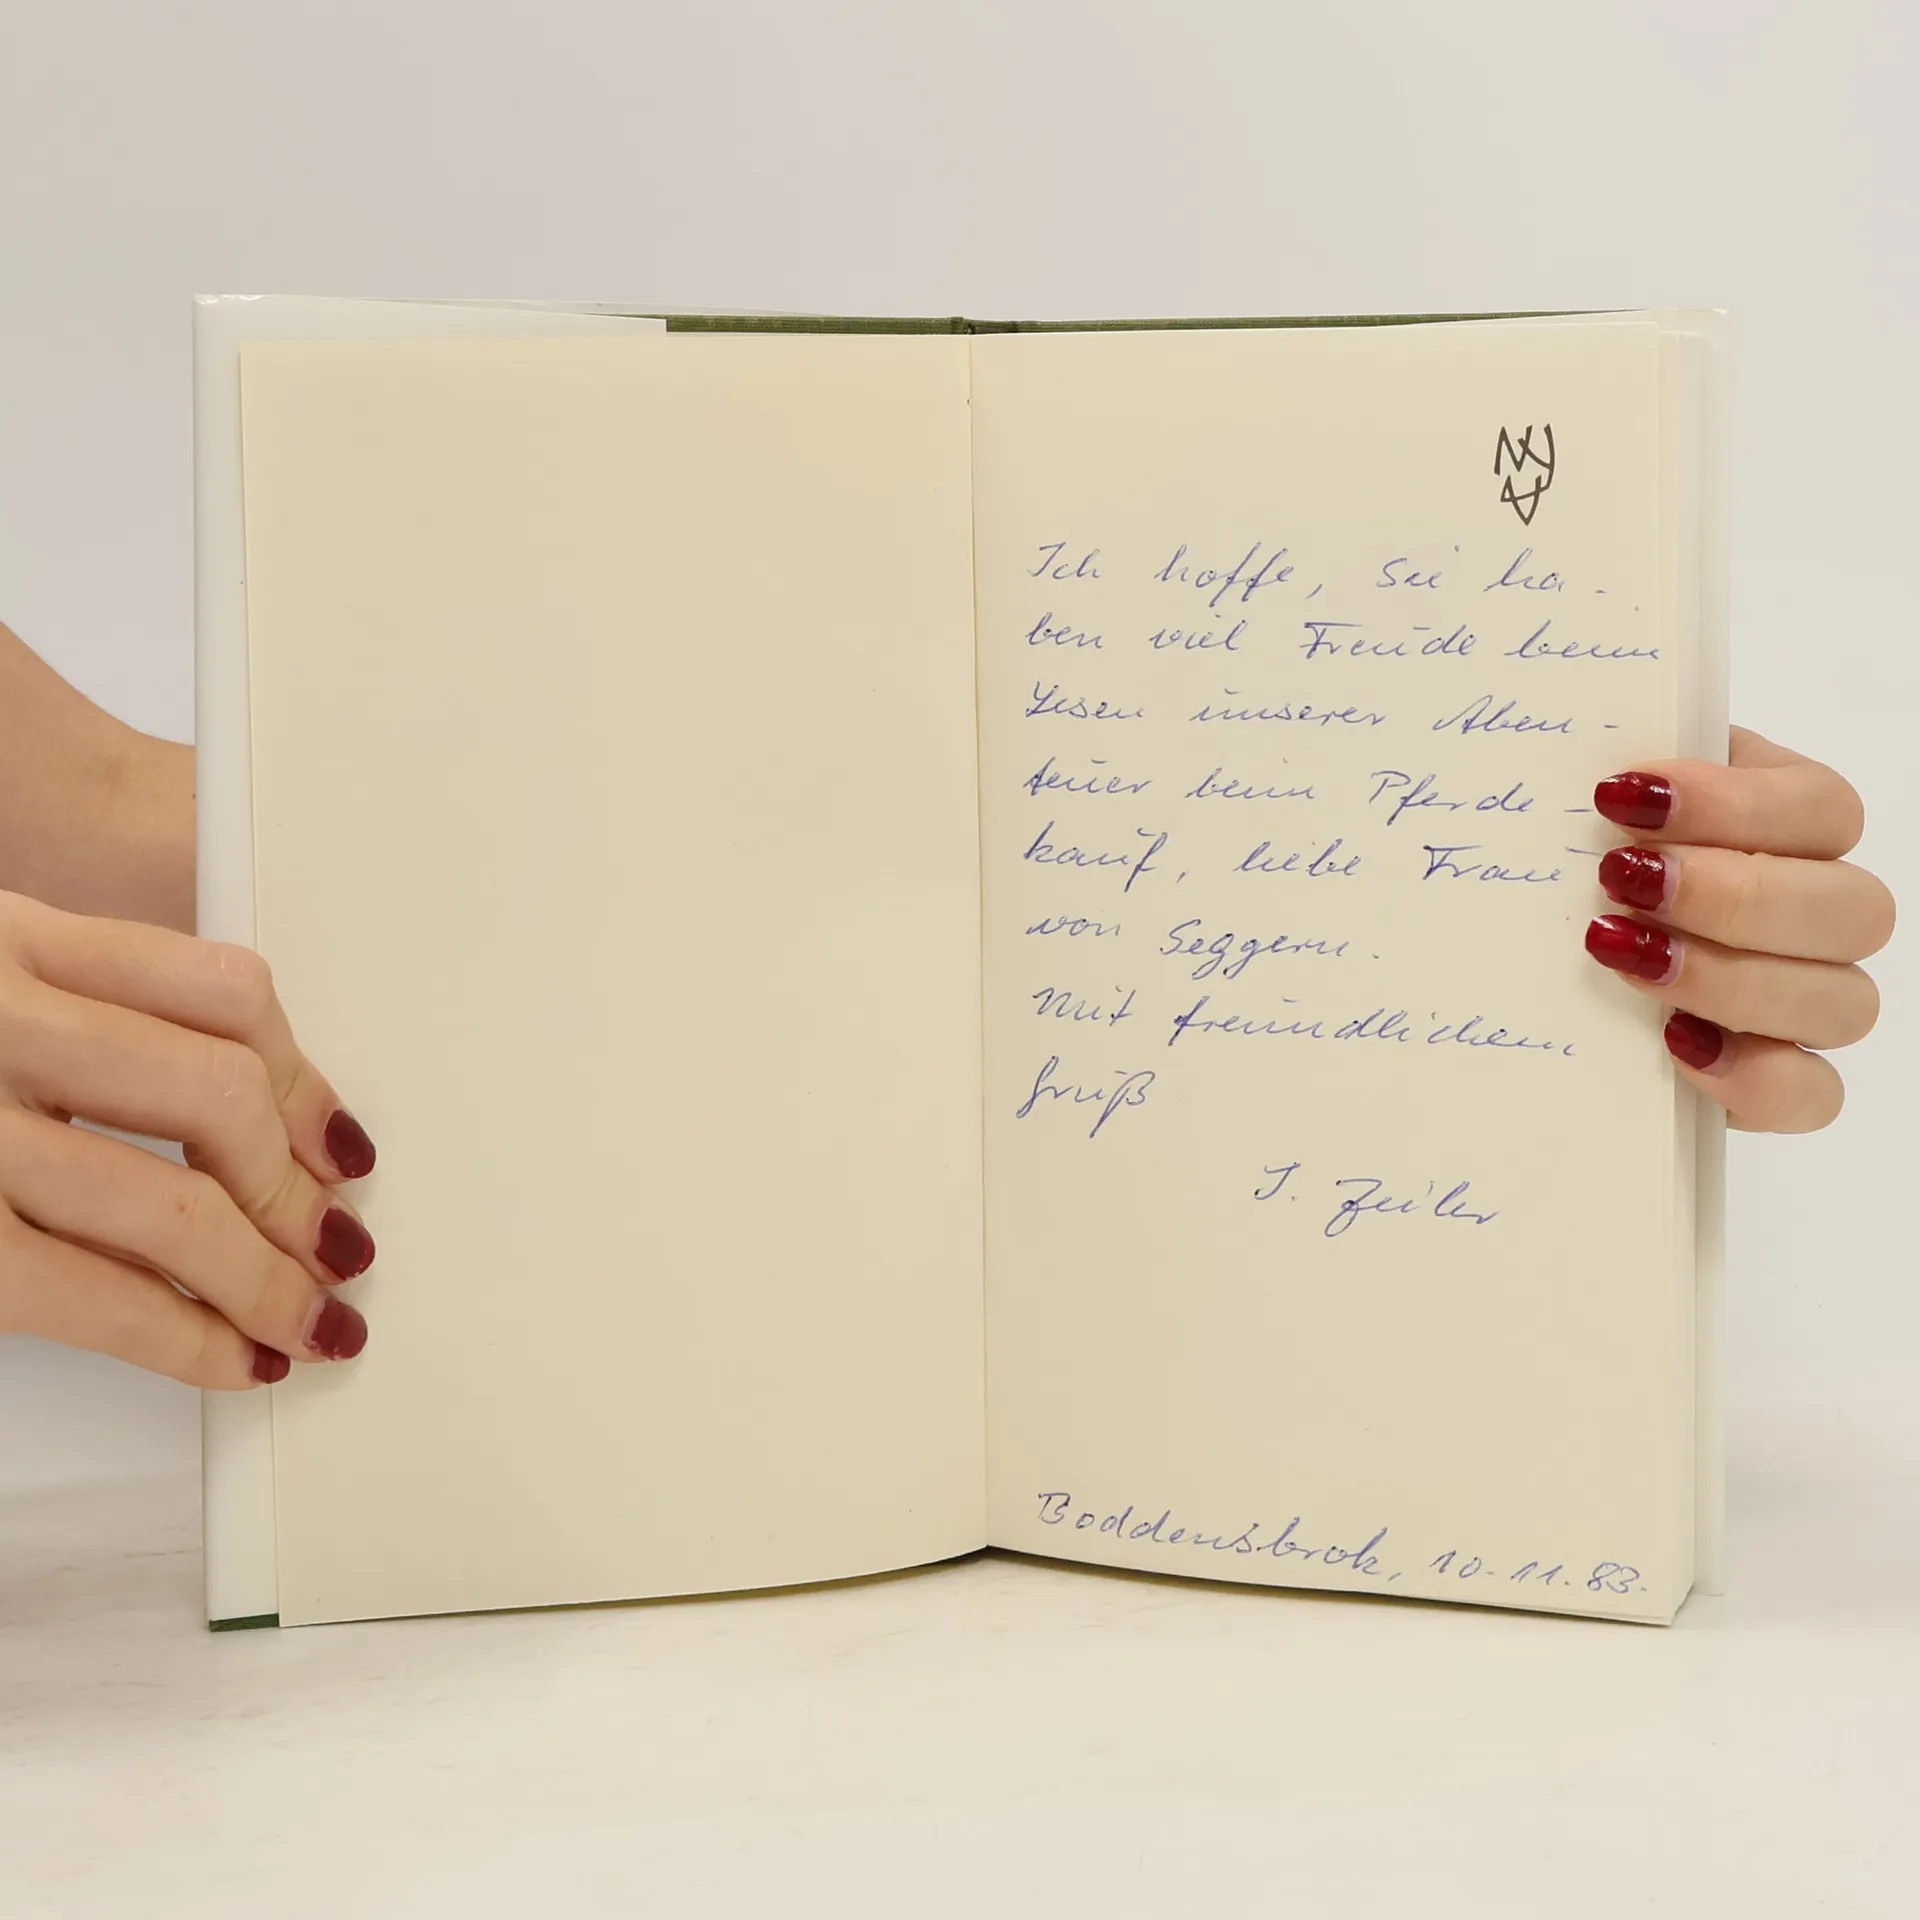 Ich hoffe, Sie ha-
ben viel Freude beim
Lesen unserer Aben-
teuer beim Pferde-
kauf, liebe Frau
von Seggern.
Mit freundlichem
Gruß
I. Zeiler
Boddensbrok, 10.11.83.